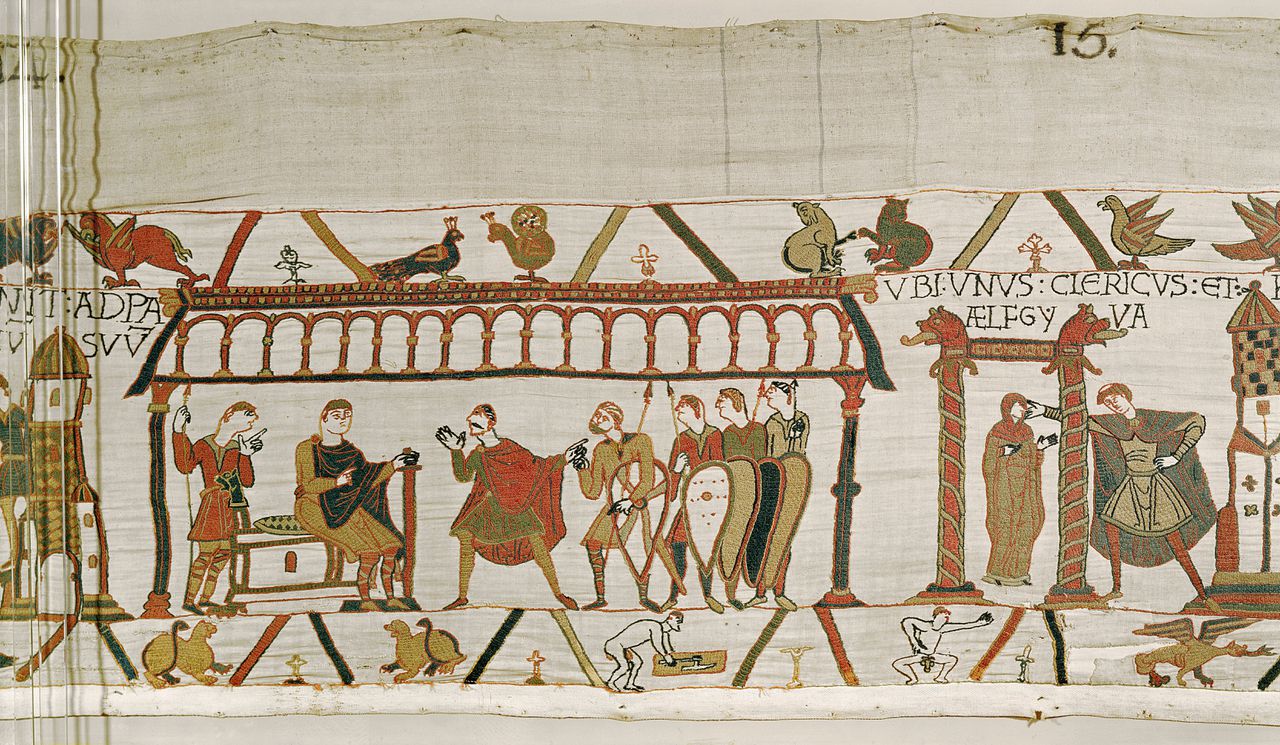 14.
15.
NIT : AD PA
TV SVV̄
VBI : VNVS : CLERICVS : ET :
ÆLFGYVA